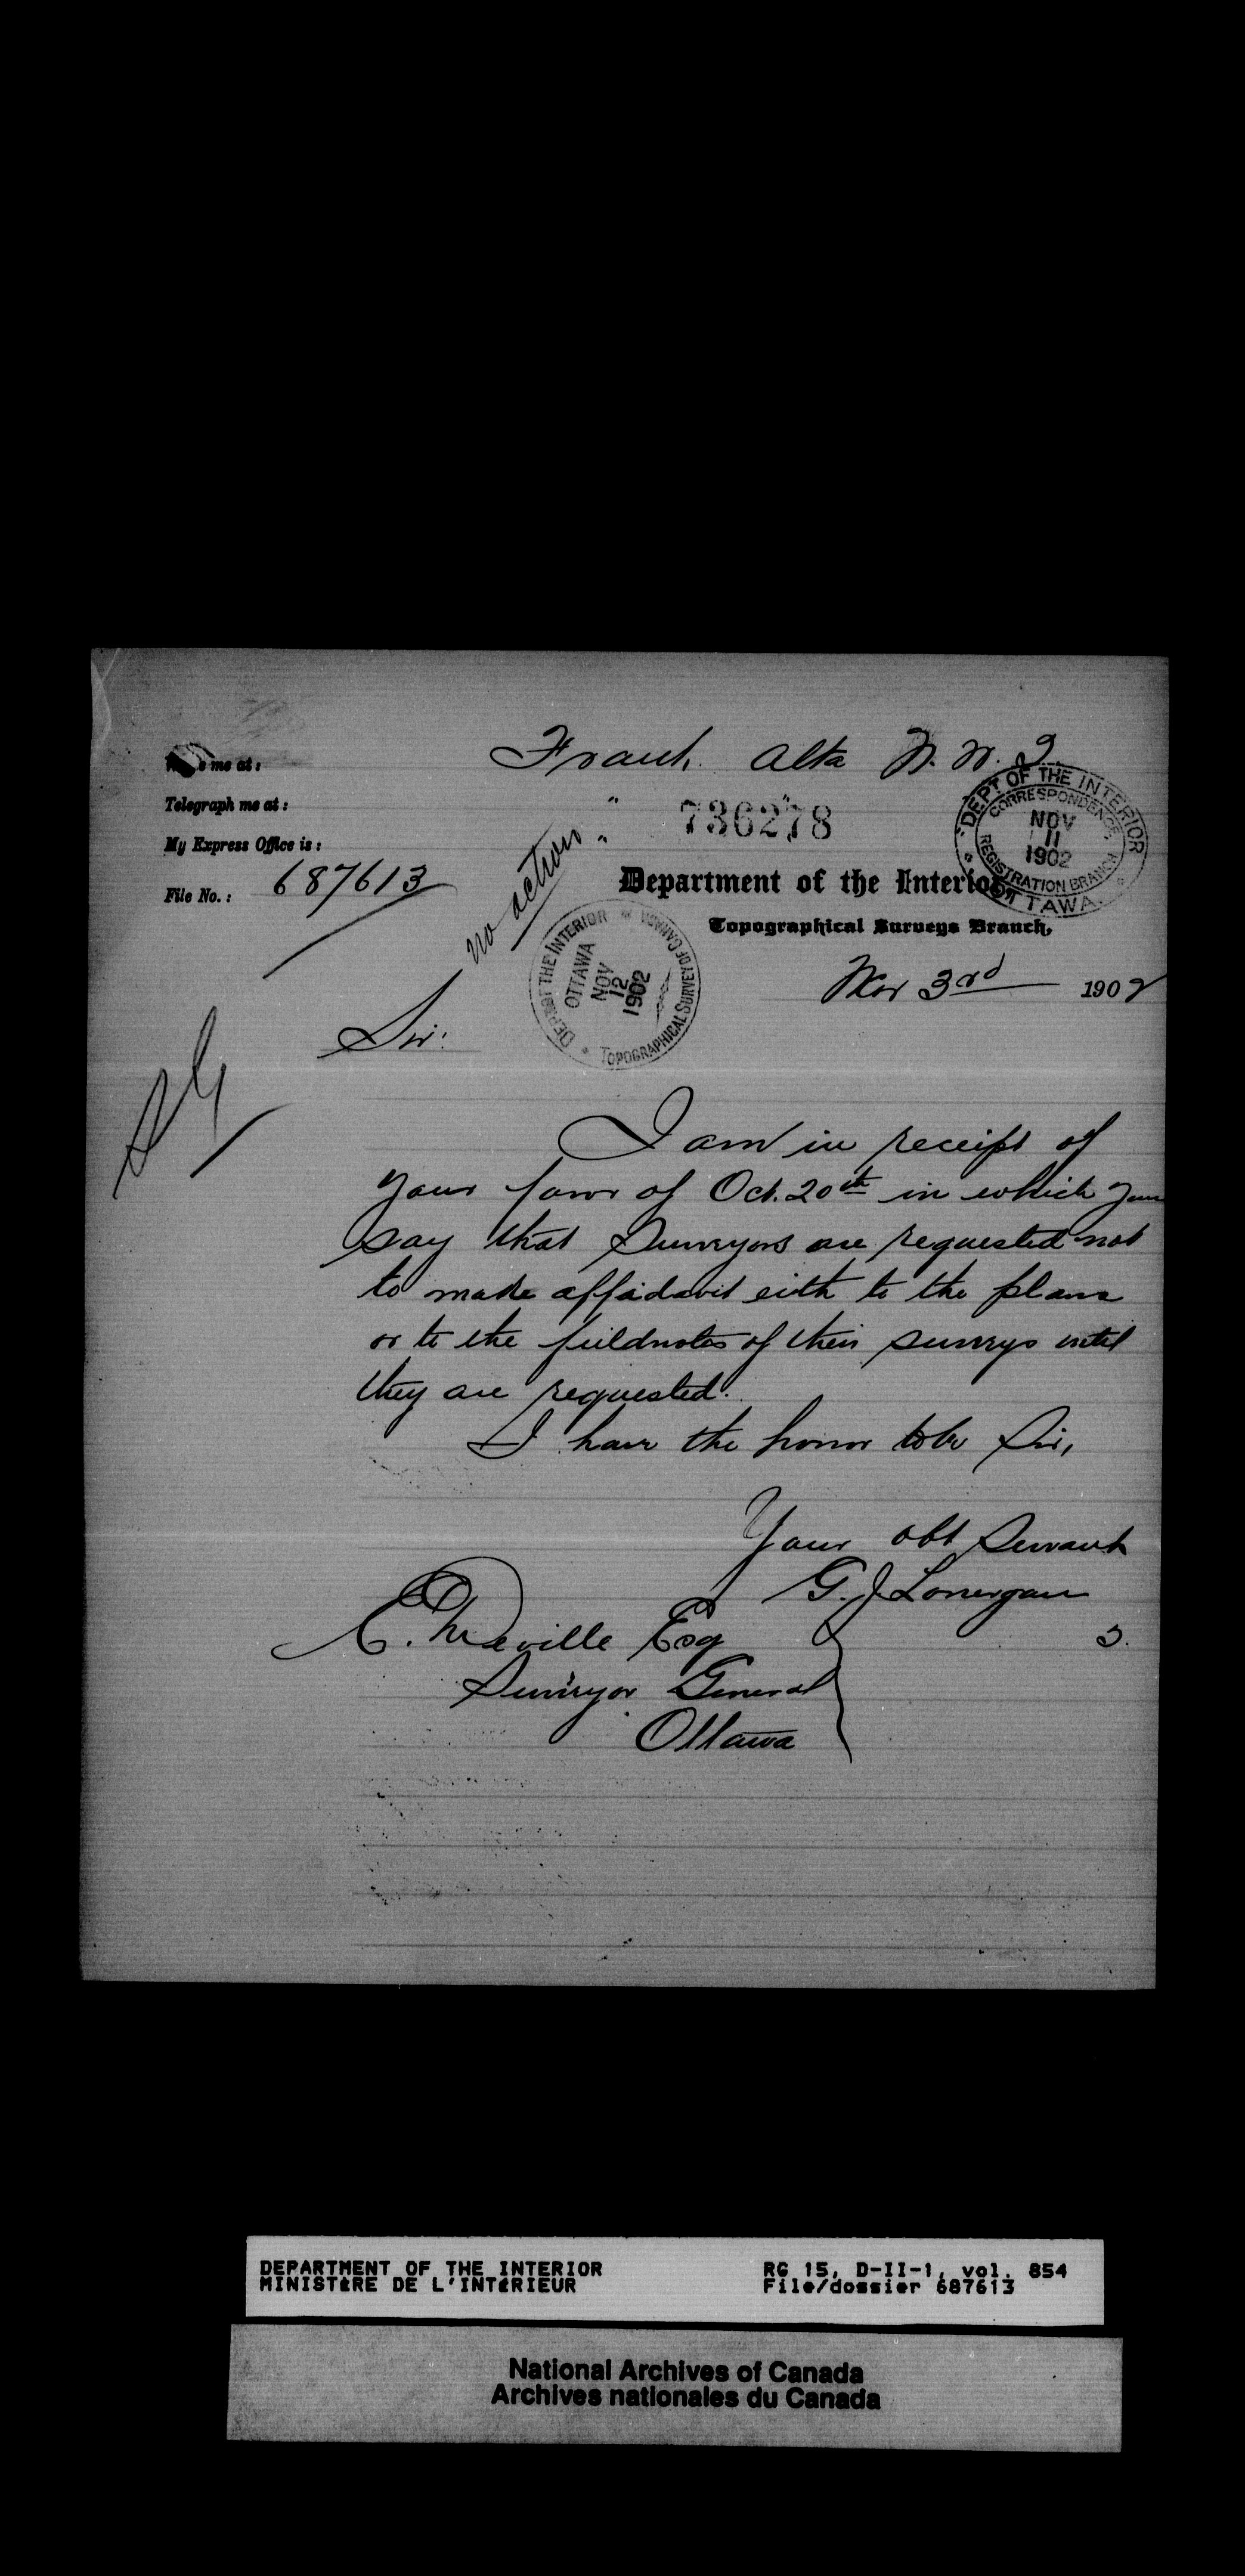 Write me at: Frank. Alta N. W. T.
Telegraph me at: " "
736278
My Express Office is: "
File No.: 687613
no action
DEPT OF THE INTERIOR OTTAWA
CORRESPONDENCE REGISTRATION BRANCH
NOV
11
1902
Department of the Interior
Topographical Surveys Branch,
DEPART. OF THE INTERIOR TOPOGRAPHICAL SURVEY OF CANADA
OTTAWA
NOV
12
1902
Nov 3rd 1902
Sir:
I am in receipt of
your favor of Oct. 20th in which you
say that Surveyors are requested not
to make affidavit eith to the plans
or to the fieldnotes of their surveys until
they are requested.
I have the honor to be Sir,
Your obt Servant
G. J. Lonergan
E. Deville Esq
Surveyor General
Ottawa
DEPARTMENT OF THE INTERIOR RG 15, D-II-1, vol. 854
MINISTÈRE DE L'INTÉRIEUR File/dossier 687613
National Archives of Canada
Archives nationales du Canada